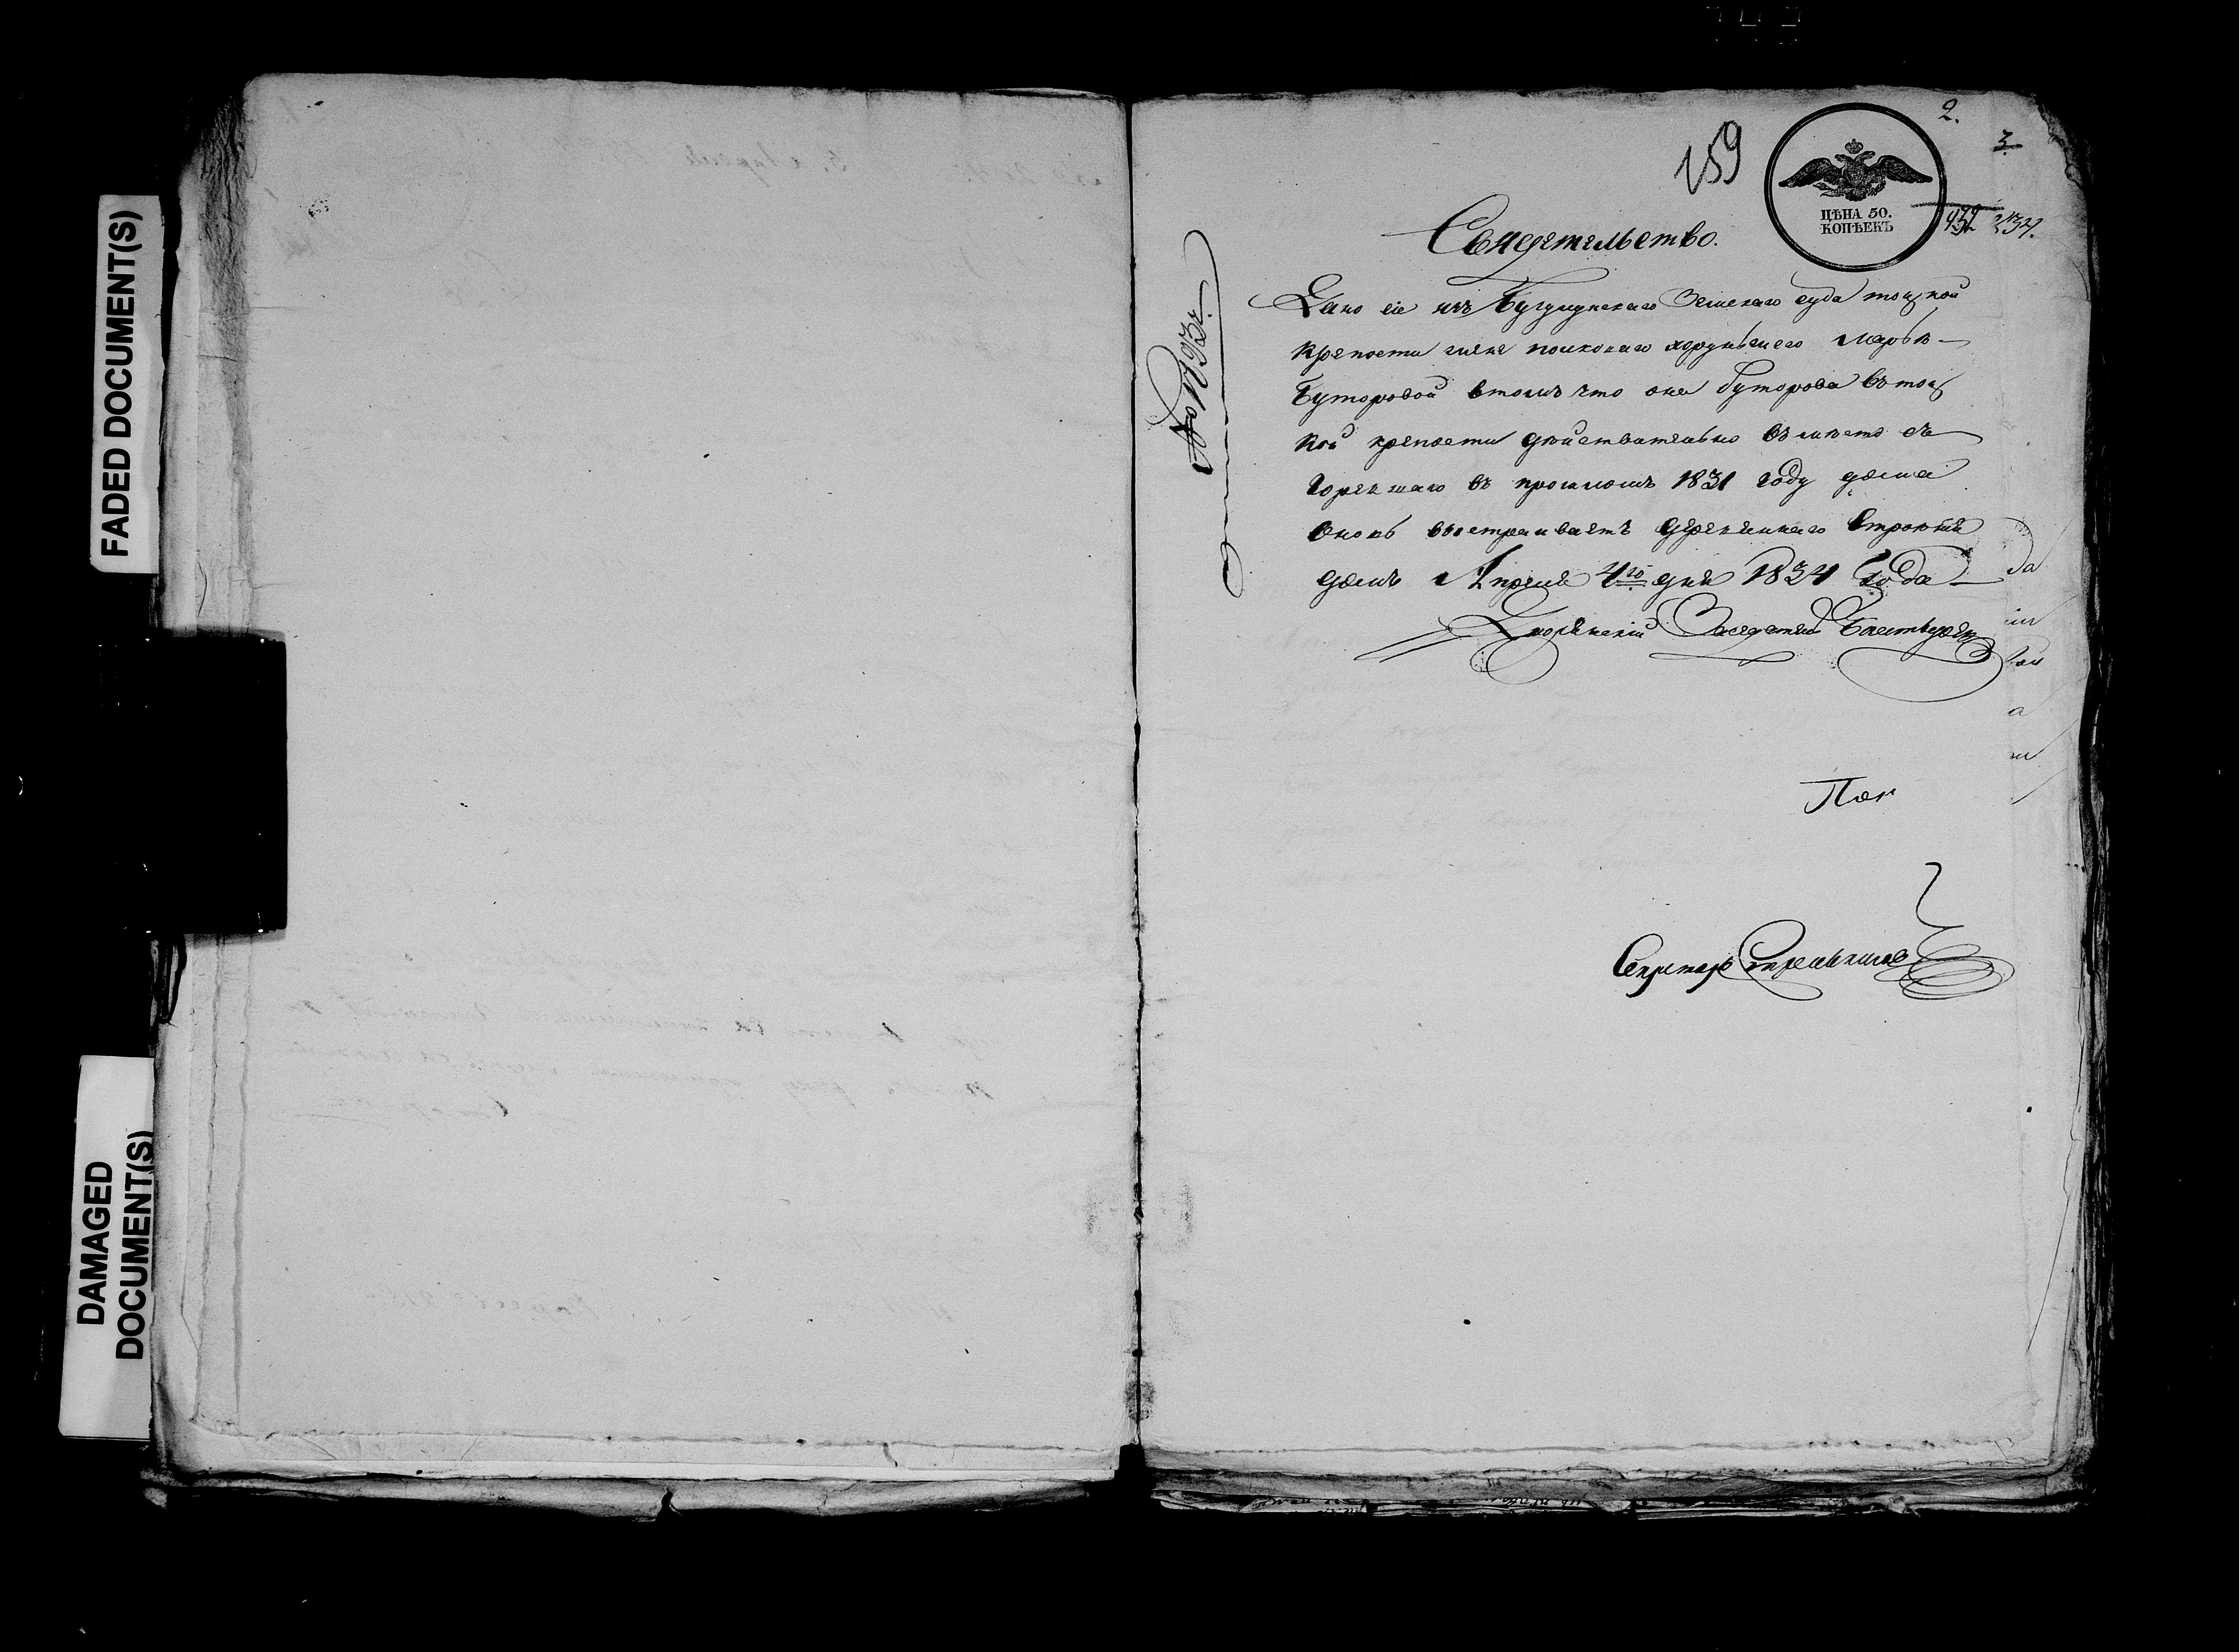 FADED DOCUMENT(S)
DAMAGED
DOCUMENT(S)
2.
3
159
ЦѢНА 50.
КОПѢЕКЪ
Свидетельство.
Дано сіе изъ Бугульминскаго Земскаго суда тоцкой
крепости жене полковаго хорунжаго Марье
Буторовой втомъ что она Буторова въ тоц
кой крепости действительно въ место сго
горевшаго въ прошломъ 1831 году дома
вновь выстраиваетъ деревяннаго строенія
домъ Апреля 4го дня 1834 Года
Дворянский Заседатель
Пов
Секретарь